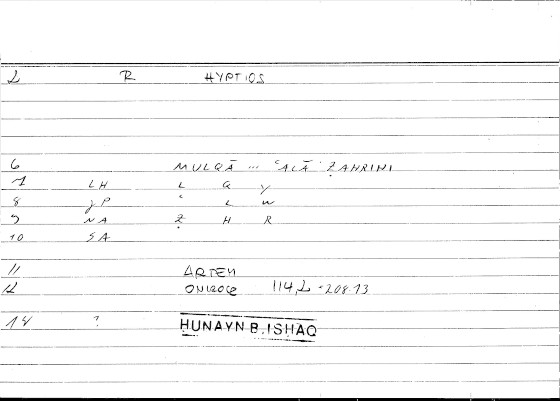 2 R HYPTIOS
6 MULQĀ ... ʿALĀ ẒAHRIHI
7 LH L Q Y
8 JP ʿ L W
9 NA Ẓ H R
10 SA
11 ARTEM
12 ONIROCR 114,2 - 208.13
14 ?
HUNAYN B. ISHAQ